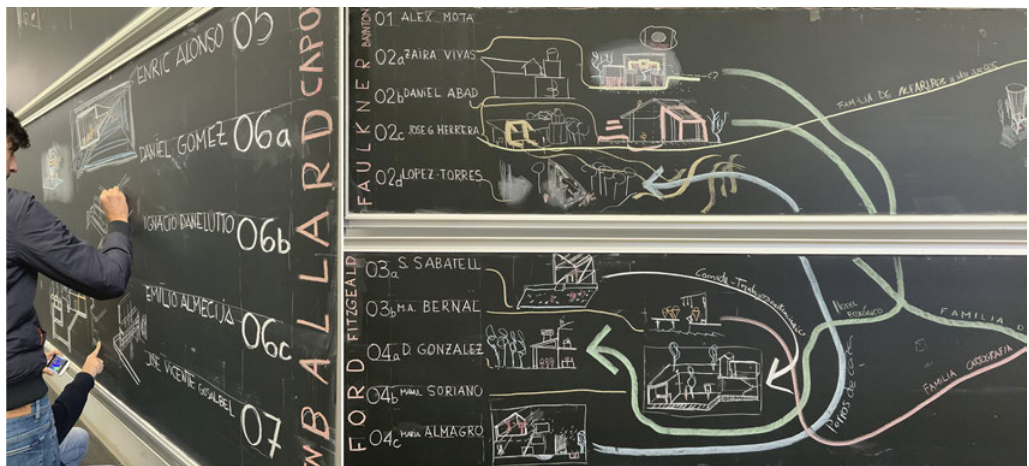 ENRIC ALONSO 05
DANIEL GOMEZ 06a
IGNACIO DANELUTTO 06b
EMILIO ALMECIJA 06c
JOSE VICENTE GOSALBEL 07
CAPO
WBALLARD
BAYNTON
FAULKNER
01 ALEX MOTA
02a ZAIRA VIVAS
02b DANIEL ABAD
02c JOSE G HERRERA
02d LOPEZ-TORRES
FAMILIA DE ALFAREROS
FITZGEALD
FORD
03a S. SABATELL
03b M.A. BERNAL
04a D. GONZALEZ
04b SORIANO
04c MARIA ALMAGRO
Hotel
ecológico
FAMILIA D
FAMILIA CARTOGRAFIA
Perros de